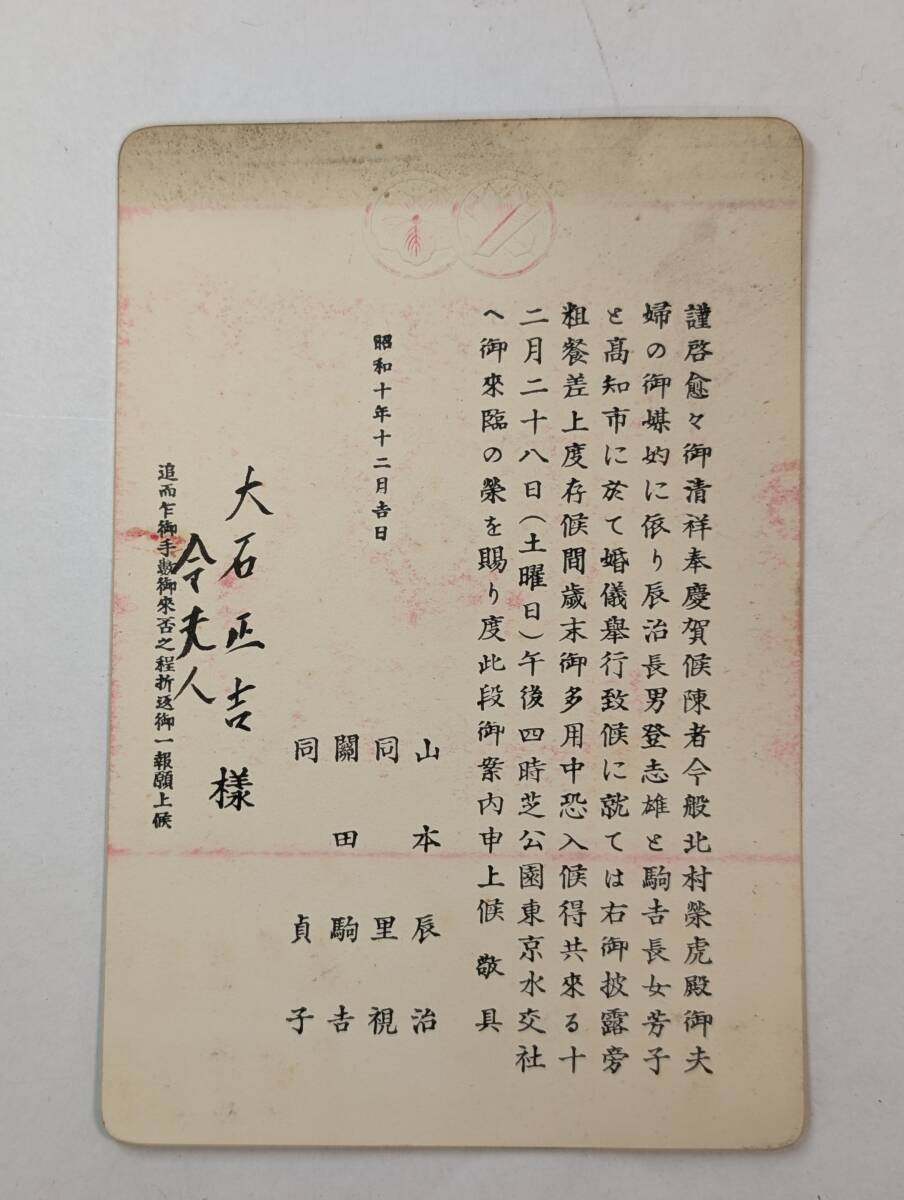 謹啓愈々御清祥奉慶賀候陳者今般北村榮虎殿御夫
婦の御媒妁に依り辰治長男登志雄と駒吉長女芳子
と高知市に於て婚儀擧行致候に就ては右御披露旁
粗餐差上度存候間歳末御多用中恐入候得共來る十
二月二十八日(土曜日)午後四時芝公園東京水交社
へ御來臨の榮を賜り度此段御案内申上候 敬具
昭和十年十二月吉日
山本辰治
同里視
關田駒吉
同貞子
大石正吉様
令夫人
追而乍御手數御來否之程折返御一報願上候